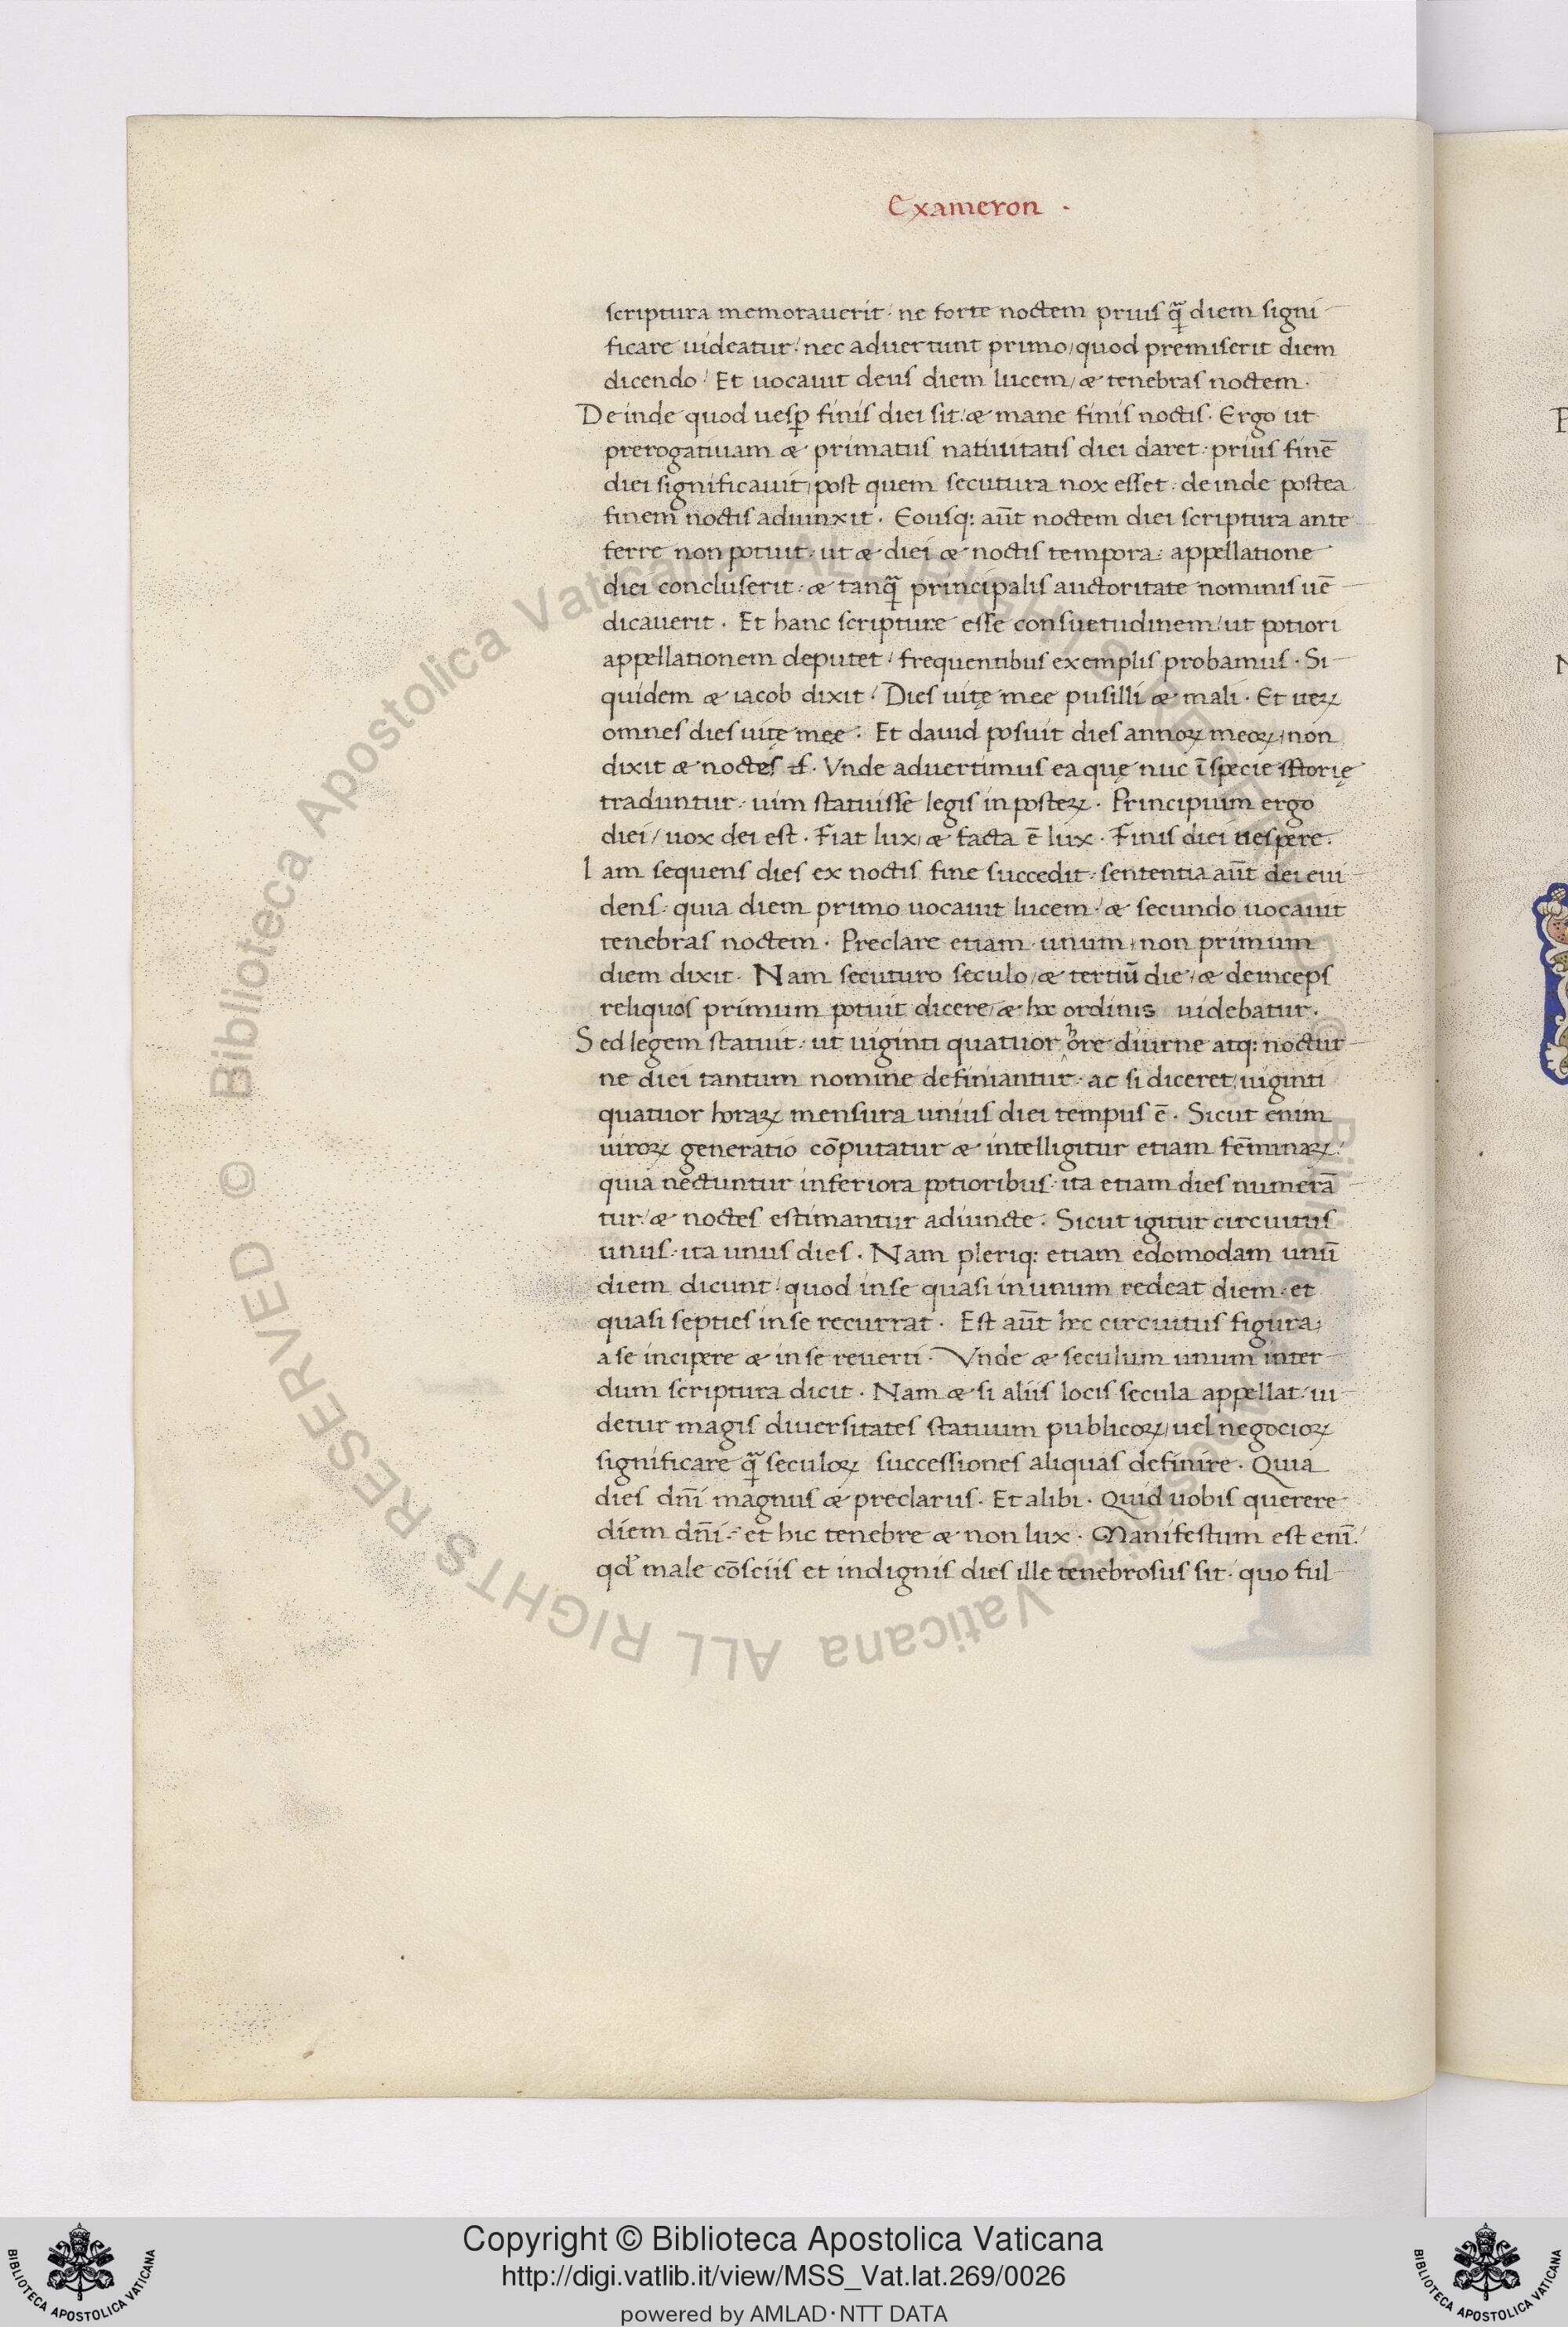 Exameron ·
scriptura memorauerit· ne forte noctem prius q̃ diem signi
ficare uideatur· nec aduertunt primo/ quod premiserit diem
dicendo· Et uocauit deus diem lucem/ & tenebras noctem·
Deinde quod uesꝑ finis diei sit· & mane finis noctis· Ergo ut
prerogatiuam & primatus natiuitatis diei daret· prius finē
diei significauit/ post quem secutura nox esset· deinde postea
finem noctis adiunxit· Eousq: aūt noctem diei scriptura ante
ferre non potuit· ut & diei & noctis tempora· appellatione
diei concluserit· & tanq̃ principalis auctoritate nominis uē
dicauerit· Et hanc scripture esse consuetudinem/ ut potiori
appellationem deputet· frequentibus exemplis probamus· Si
quidem & iacob dixit· Dies uitę mee pusilli & mali· Et ueꝝ
omnes dies uitę meę· Et dauid posuit dies annoꝝ meoꝝ/ non
dixit & noctes Vnde aduertimus ea quę nuc ī specie istorię
traduntur· uim statuisse legis in posteꝝ· Principium ergo
diei/ uox dei est· Fiat lux/ & facta ē lux· Finis diei uespere·
Iam sequens dies ex noctis fine succedit· sententia aūt dei eui
dens· quia diem primo uocauit lucem· & secundo uocauit
tenebras noctem· Preclare etiam unum/ non primum
diem dixit· Nam secuturo seculo/ & tertiū die/ & deinceps
reliquos primum potuit dicere/ & hoc ordinis uidebatur·
Sed legem statuit· ut uiginti quatuor hore diurne atq: noctur
ne diei tantum nomine definiantur· ac si diceret/ uiginti
quatuor horaꝝ mensura unius diei tempus ē· Sicut enim
uiroꝝ generatio cōputatur & intelligitur etiam fēminaꝝ·
quia nectuntur inferiora potioribus· ita etiam dies numerā
tur· & noctes estimantur adiuncte· Sicut igitur circuitus
unus· ita unus dies· Nam pleriq: etiam edomodam unū
diem dicunt· quod in se quasi in unum redeat diem· et
quasi septies in se recurrat· Est aūt hec circuitus figura/
a se incipere & in se reuerti· Vnde & seculum unum inter
dum scriptura dicit· Nam & si aliis locis secula appellat· ui
detur magis diuersitates statuum publicoꝝ/ uel negocioꝝ
significare q̃ seculoꝝ successiones aliquas definire· Quia
dies dn̄i magnus & preclarus· Et alibi· Quid uobis querere
diem dn̄i· et hic tenebre & non lux· Manifestum est enī·
qd̓ male cōsciis et indignis dies ille tenebrosus sit· quo ful
© Biblioteca Apostolica Vaticana ALL RIGHTS RESERVED
© Biblioteca Apostolica Vaticana ALL RIGHTS RESERVED
Copyright © Biblioteca Apostolica Vaticana
http://digi.vatlib.it/view/MSS_Vat.lat.269/0026
powered by AMLAD·NTT DATA
BIBLIOTECA APOSTOLICA VATICANA
BIBLIOTECA APOSTOLICA VATICANA